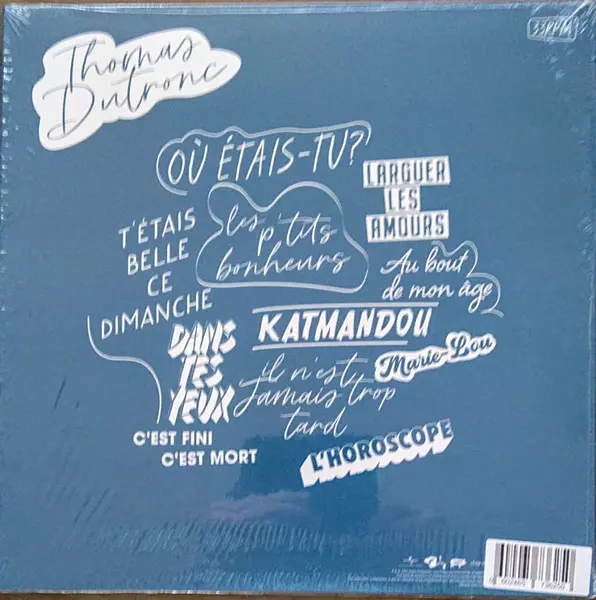 Thomas
Dutronc
33RPM
OÙ ÉTAIS-TU?
LARGUER
LES
AMOURS
T'ÉTAIS
BELLE
CE
DIMANCHE
les
p'tits
bonheurs
Au bout
de mon âge
KATMANDOU
DANS
TES
YEUX
Marie-Lou
il n'est
Jamais trop
tard
C'EST FINI
C'EST MORT
L'HOROSCOPE